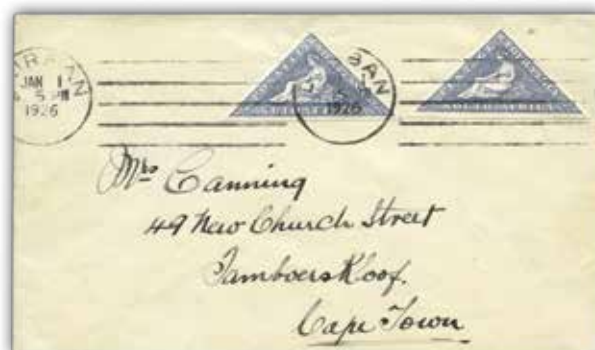 URBAN
JAN 1
5 PM
1926
BAN
1926
Mrs Canning
49 New Church Street
Tamboerskloof.
Cape Town